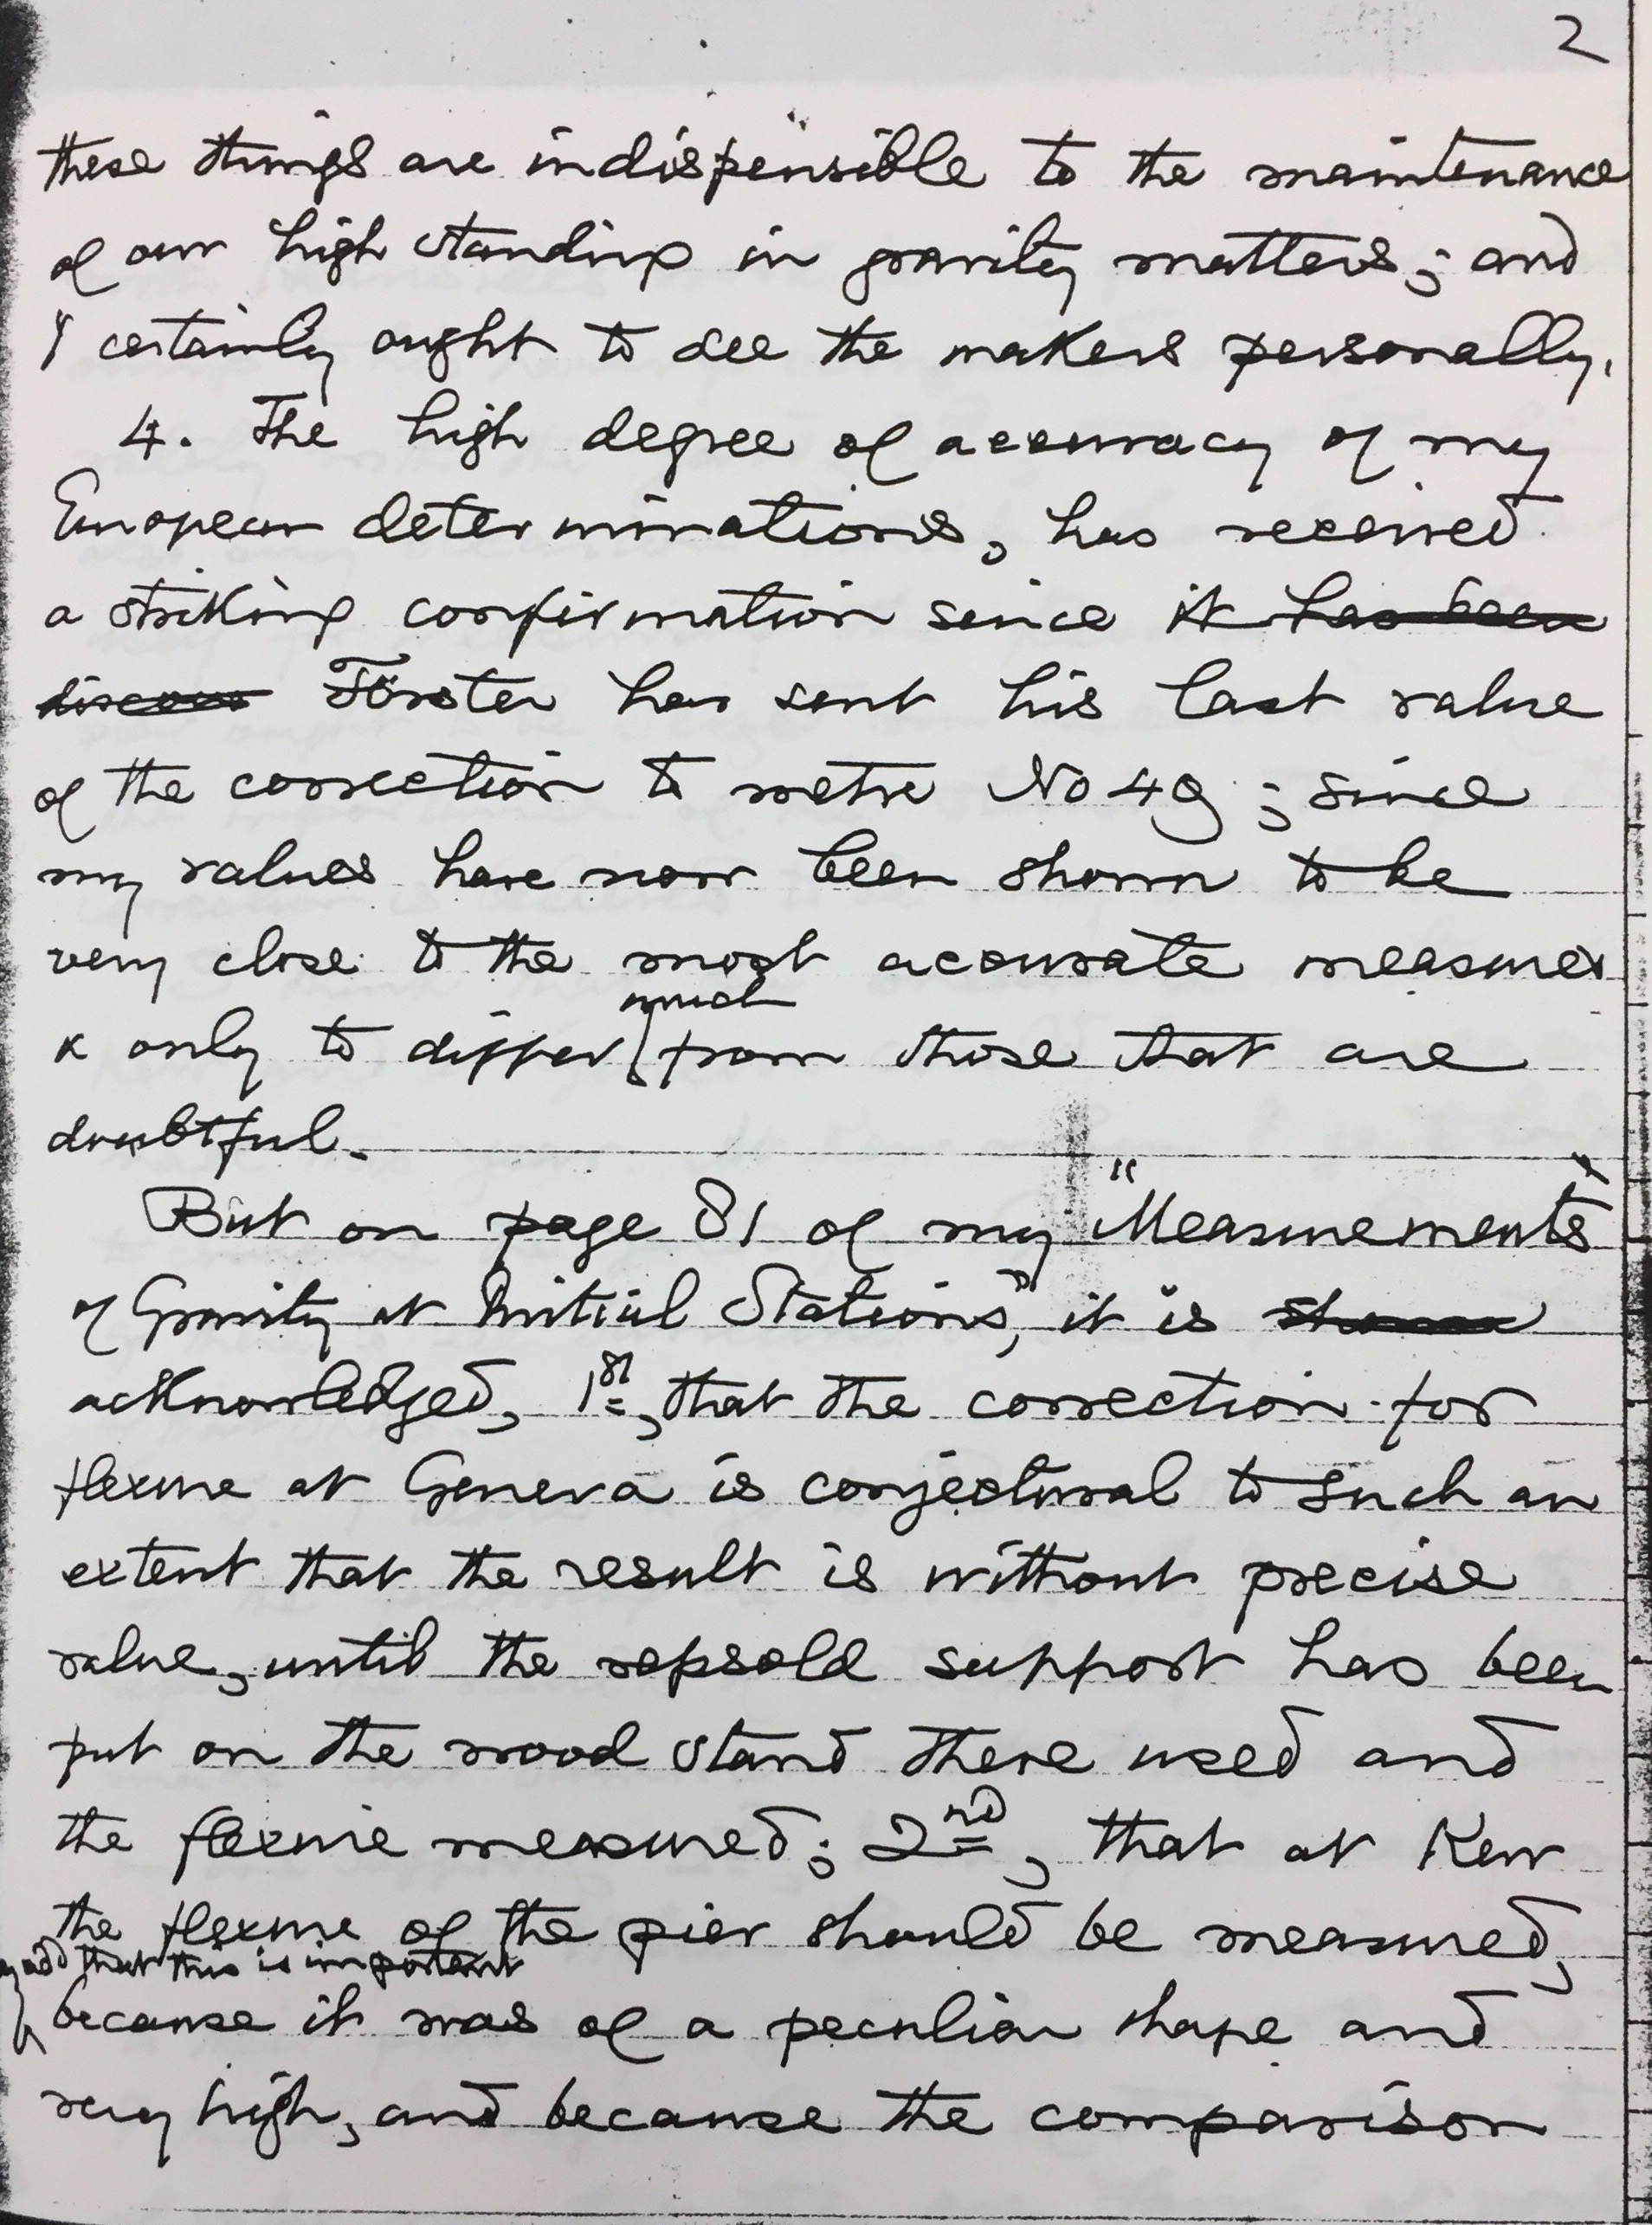 2
these things are indispensible to the maintenance
of our high standing in gravity matters; and
I certainly ought to see the makers personally.
4. The high degree of accuracy of my
European determinations, has received
a striking confirmation since it has been
discov Förster has sent his last value
of the correction to metre No 49; since
my values have now been shown to be
very close to the most accurate measures
much
& only to differ from those that are
doubtful.
But on page 81 of my "Measurements"
of Gravity at Initial Stations," it is shown
acknowledged, 1st, that the correction for
flexure at Geneva is conjectural to such an
extent that the result is without precise
value, until the repsold support has been
put on the wood stand there used and
the flexure measured; 2nd, that at Kew
the flexure of the pier should be measured,
add that this is important
because it was of a peculiar shape and
very high, and because the comparison